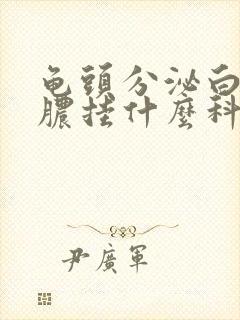 龟頭分泌白
膿挂什麼科
尹廣軍